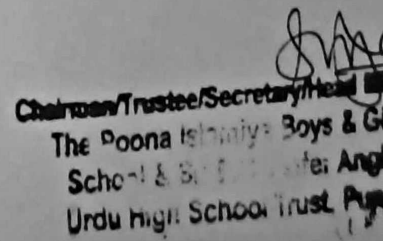 Chairman/Trustee/Secretary/Head
The Poona Islamiya Boys & Gi
School & Ang
Urdu High School Trust, Pun